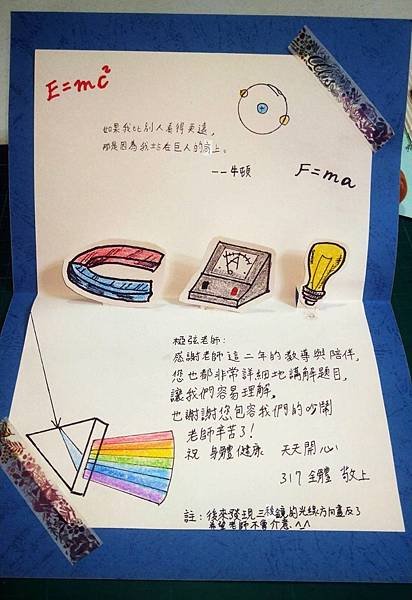 E=mc²
如果我比別人看得更遠,
那是因為我站在巨人的肩上。
——牛頓
F=ma
A
極弦老師:
感謝老師這二年的教導與陪伴,
您也都非常詳細地講解題目,
讓我們容易理解。
也謝謝您包容我們的吵鬧
老師辛苦了!
祝 身體健康 天天開心
317 全體 敬上
註:後來發現三稜鏡的光線方向畫反了
希望老師不會介意^^